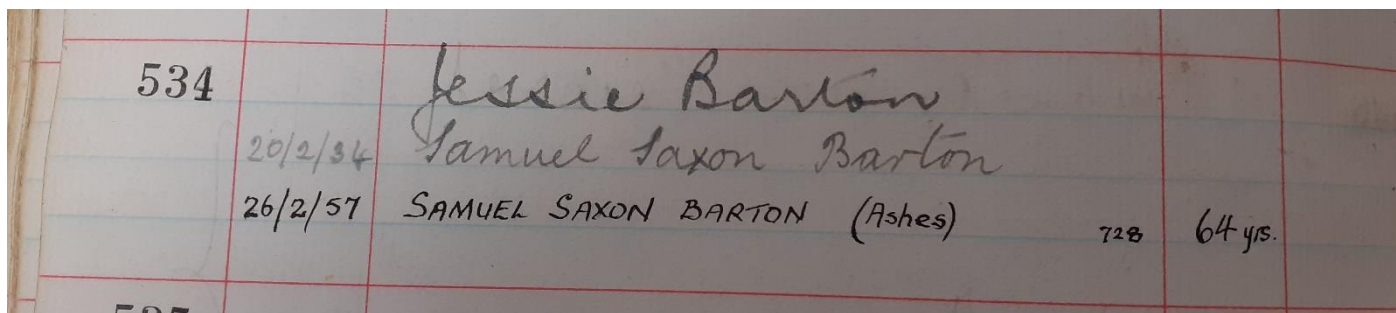 534 Jessie Barton
20/2/34 Samuel Saxon Barton
26/2/57 SAMUEL SAXON BARTON (Ashes) 728 64 yrs.